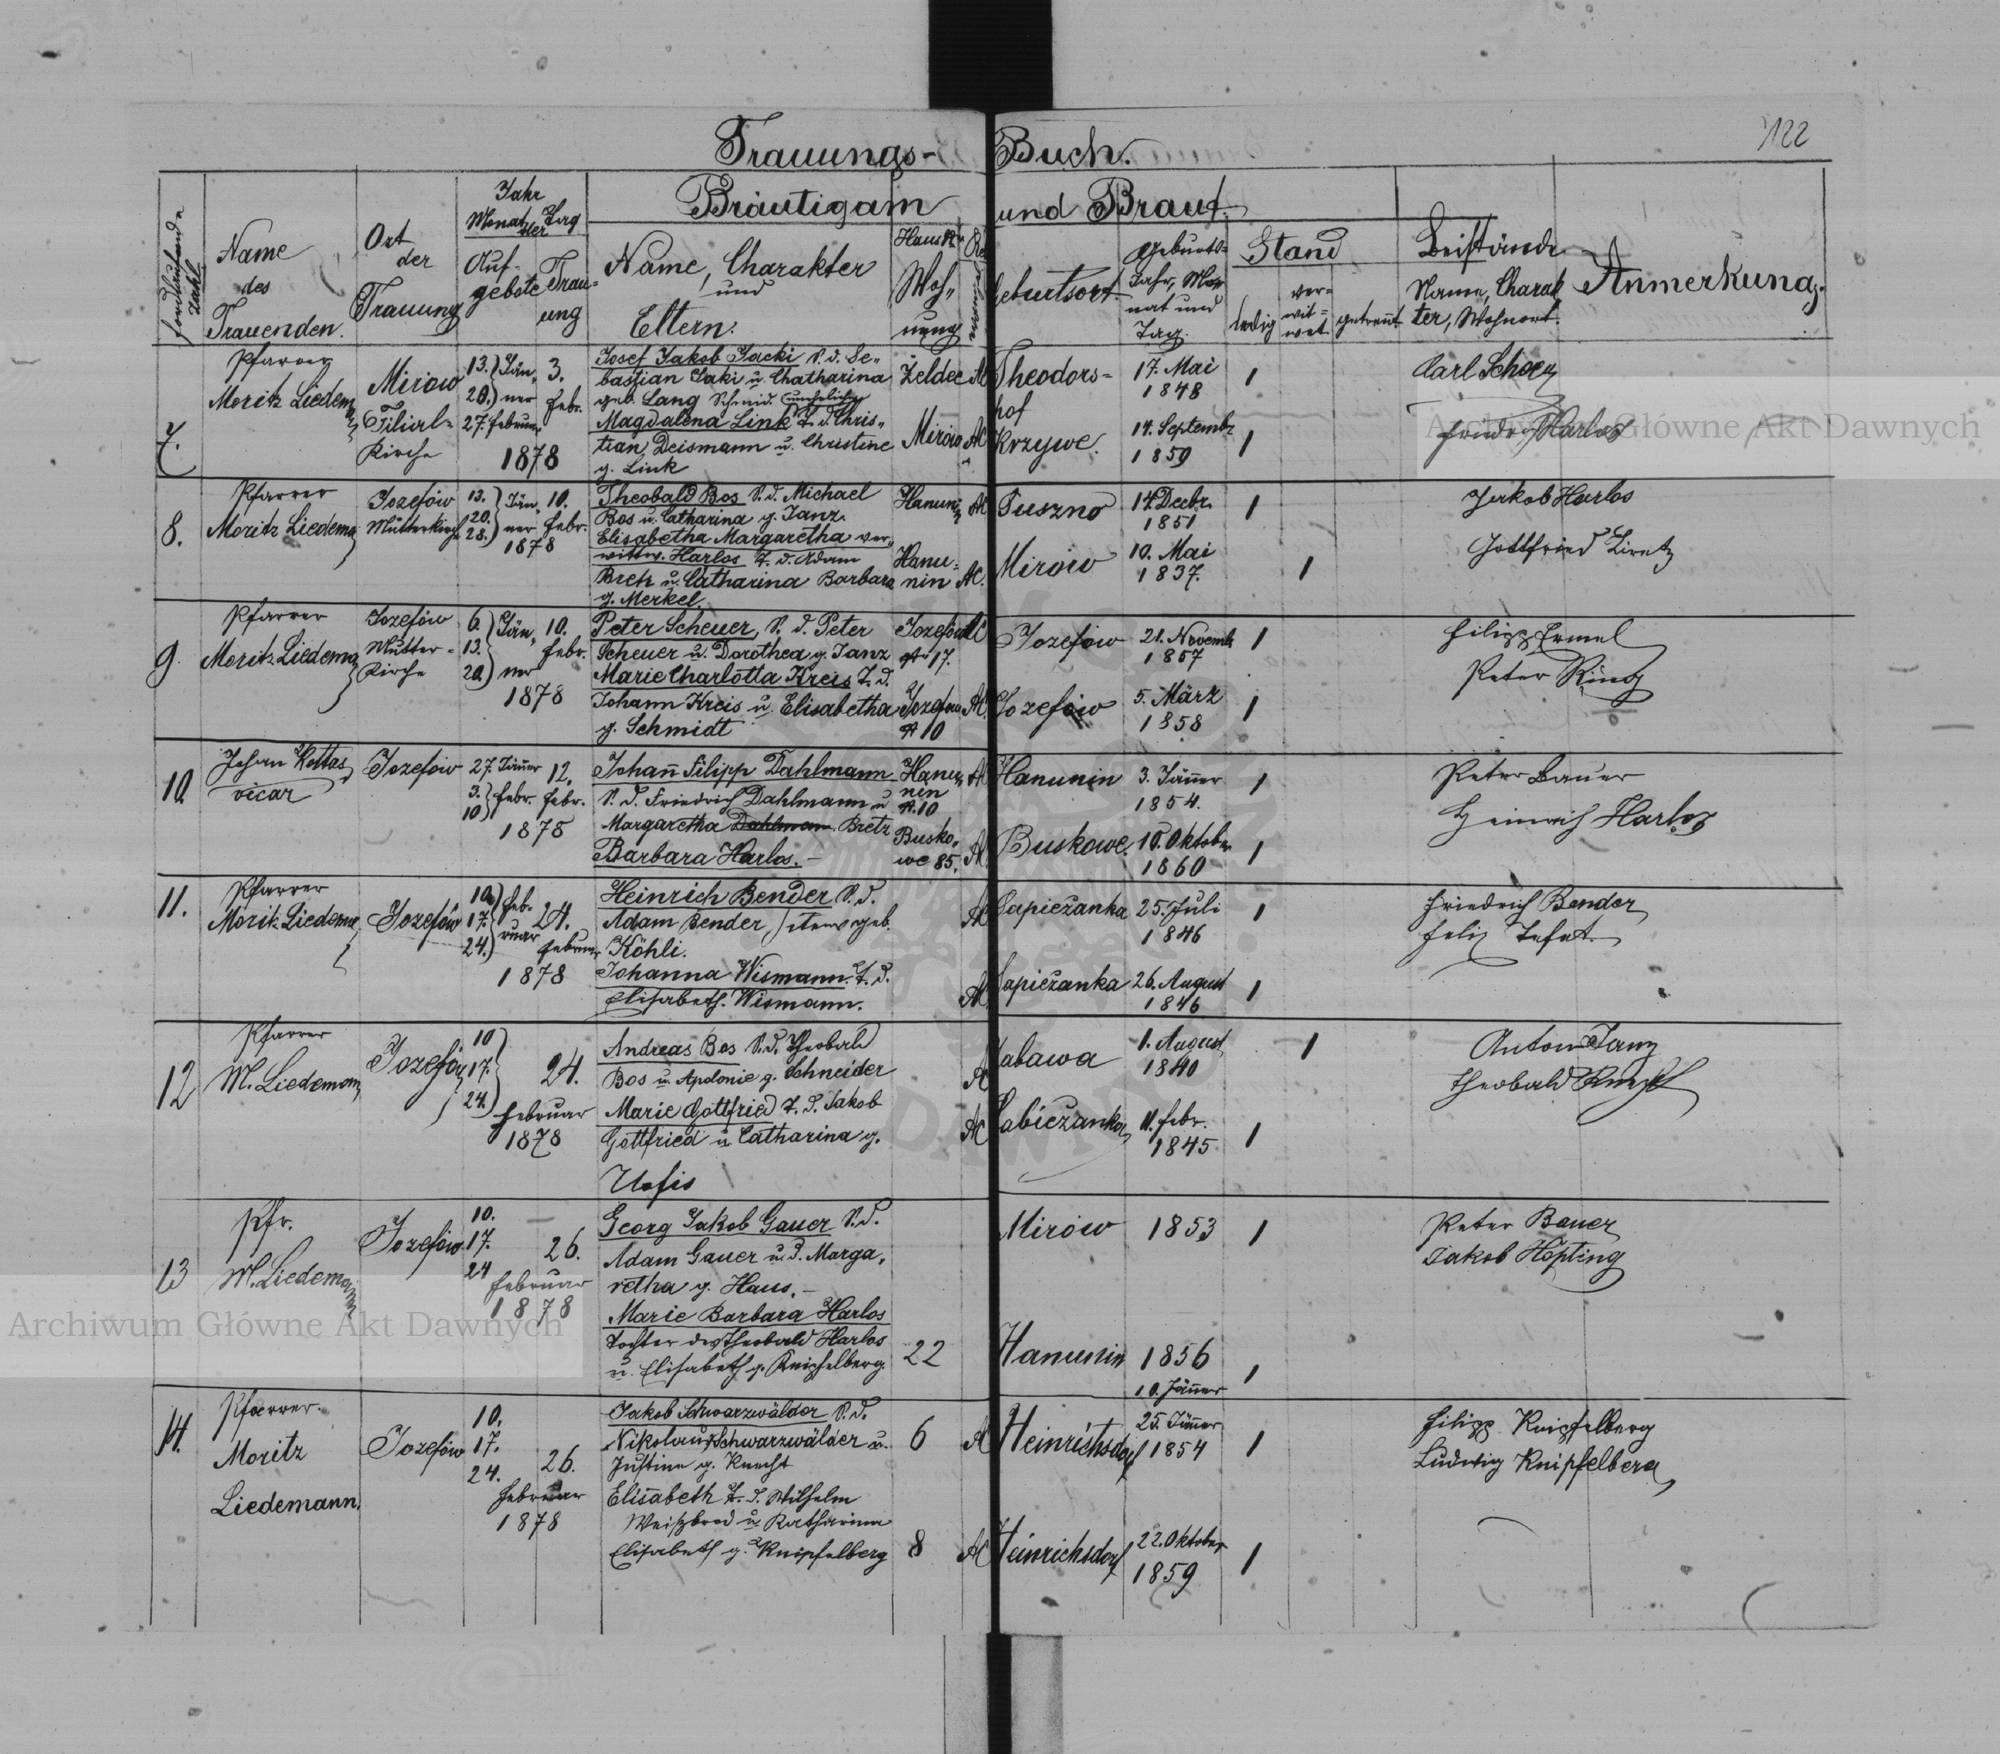 122
Trauungs-Buch.
fortlaufende Zahl
Name des Trauenden.
Ort der Trauung
Jahr
Monat Tag
der
Aufgebote
Trauung
Bräutigam und Braut.
Name, Charakter
und
Eltern.
Haus Nr
Wohnung
Geburtsort.
Geburts-
Jahr, Mo-
nat und
Tag.
Stand
ledig
ver-
wit-
wet
getrennt
Beistände
Name, Charak
ter, Wohnort.
Anmerkung.
7.
Pfarrer
Moritz Liedemann
Mirow
Filial-
Kirche
13. Jän-
20. ner
27. februar
3.
febr.
1878
Josef Jakob Jacki S. d. Se-
bastian Jaki u. Chatharina
geb. Lang Schmid (unehelich)
Magdalena Link T. d. Chris-
tian Deismann u. Christine
g. Link
Żeldec
AC
Mirow
AC
Theodors-
hof
Krzywe.
17. Mai
1848
14. Septembr
1859
1
1
Carl Schoey
Friedrich Harlos
8.
Pfarrer
Moritz Liedemann
Jozefów
Mutterkirche
13.
20.
28.
Jän-
ner
10.
febr.
1878
Theobald Bos S. d. Michael
Bos u. Catharina g. Janz
Elisabetha Margaretha ver-
wittw. Harlos T. d. Adam
Breh u. Catharina Barbara
g. Merkel.
Hanunin
AC
Hanu-
nin
AC.
Tuszno
Mirow
14 Decbr.
1851
10. Mai
1837.
1
1
Jakob Harlos
Gottfried Liretz
9.
Pfarrer
Moritz Liedemann
Jozefów
Mutter-
Kirche
6.
13.
20.
Jän-
ner
10.
febr.
1878
Peter Scheuer, S. d. Peter
Scheuer u. Dorothea g. Janz
Marie Charlotta Kreis T. d.
Johann Kreis u. Elisabetha
g. Schmidt
Jozefów AC
No 17.
Jozefow AC.
No 10
Jozefow
Jozefow
21. Novemb
1857
5. März
1858
1
1
Filipp Ermel
Peter Rintz
10.
Johan Kottas
vicar
Jozefow
27. Jänner
3.
10
febr.
12.
febr.
1878
Johann Filipp Dahlmann
S. d. Friedrich Dahlmann u
Margaretha Dahlman Bretz
Barbara Harlos. —
Hanu-
nin
No. 10
AC
Busko-
we 85.
AC
Hanunin
Buskowe.
3. Jänner
1854.
10. Oktober
1860
1
1
Peter Bauer
Heinrich Harlos
11.
Pfarrer
Moritz Liedemann
Jozefów
10.
17.
24.
feb-
ruar
24.
februar
1878
Heinrich Bender S. d.
Adam Bender, geb.
Köhli.
Johanna Wismann. T. d.
Elisabeth. Wismann.
AC
AC
Sapieżanka
Sapieżanka
25. Juli
1846
26. August
1846
1
1
Friedrich Bender
Felix Tefet.
12
Pfarrer
M. Liedemann
Jozefów
10
17.
24.
24.
februar
1878
Andreas Bos S. d. Theobald
Bos u. Apolonie g. Schneider
Marie Gottfried T. d. Jakob
Gottfried u Catharina g.
AC
AC
Jabawa
Sabieżanka
1. August
1840
11. febr.
1845
1
1
Anton Janz
Theobald Knecht
13
Pfr.
M. Liedemann
Jozefów
10.
17.
24
26.
februar
1878
Georg Jakob Gauer S. d.
Adam Gauer u. d. Marga-
retha g. Haus. —
Marie Barbara Harlos
Tochter des Theobald Harlos
u. Elisabeth g. Knipfelberg.
22
Mirow
Hanunin
1853
1856
10. Jänner
1
1
Peter Bauer
Jakob Höpting
14.
Pfarrer.
Moritz
Liedemann.
Jozefów
10.
17.
24.
26.
februar
1878
Jakob Schwarzwälder S. d.
Nikolaus Schwarzwälder u.
Justine g. Knecht
Elisabeth T. d. Wilhelm
Weißbrod u. Katharina
Elisabeth g. Knipfelberg
6
AC
8
AC
Heinrichsdorf
Heinrichsdorf
25. Jänner
1854
22. Oktober
1859
1
1
Filipp Knipfelberg
Ludwig Knipfelberg
Archiwum Główne Akt Dawnych
Archiwum Główne Akt Dawnych